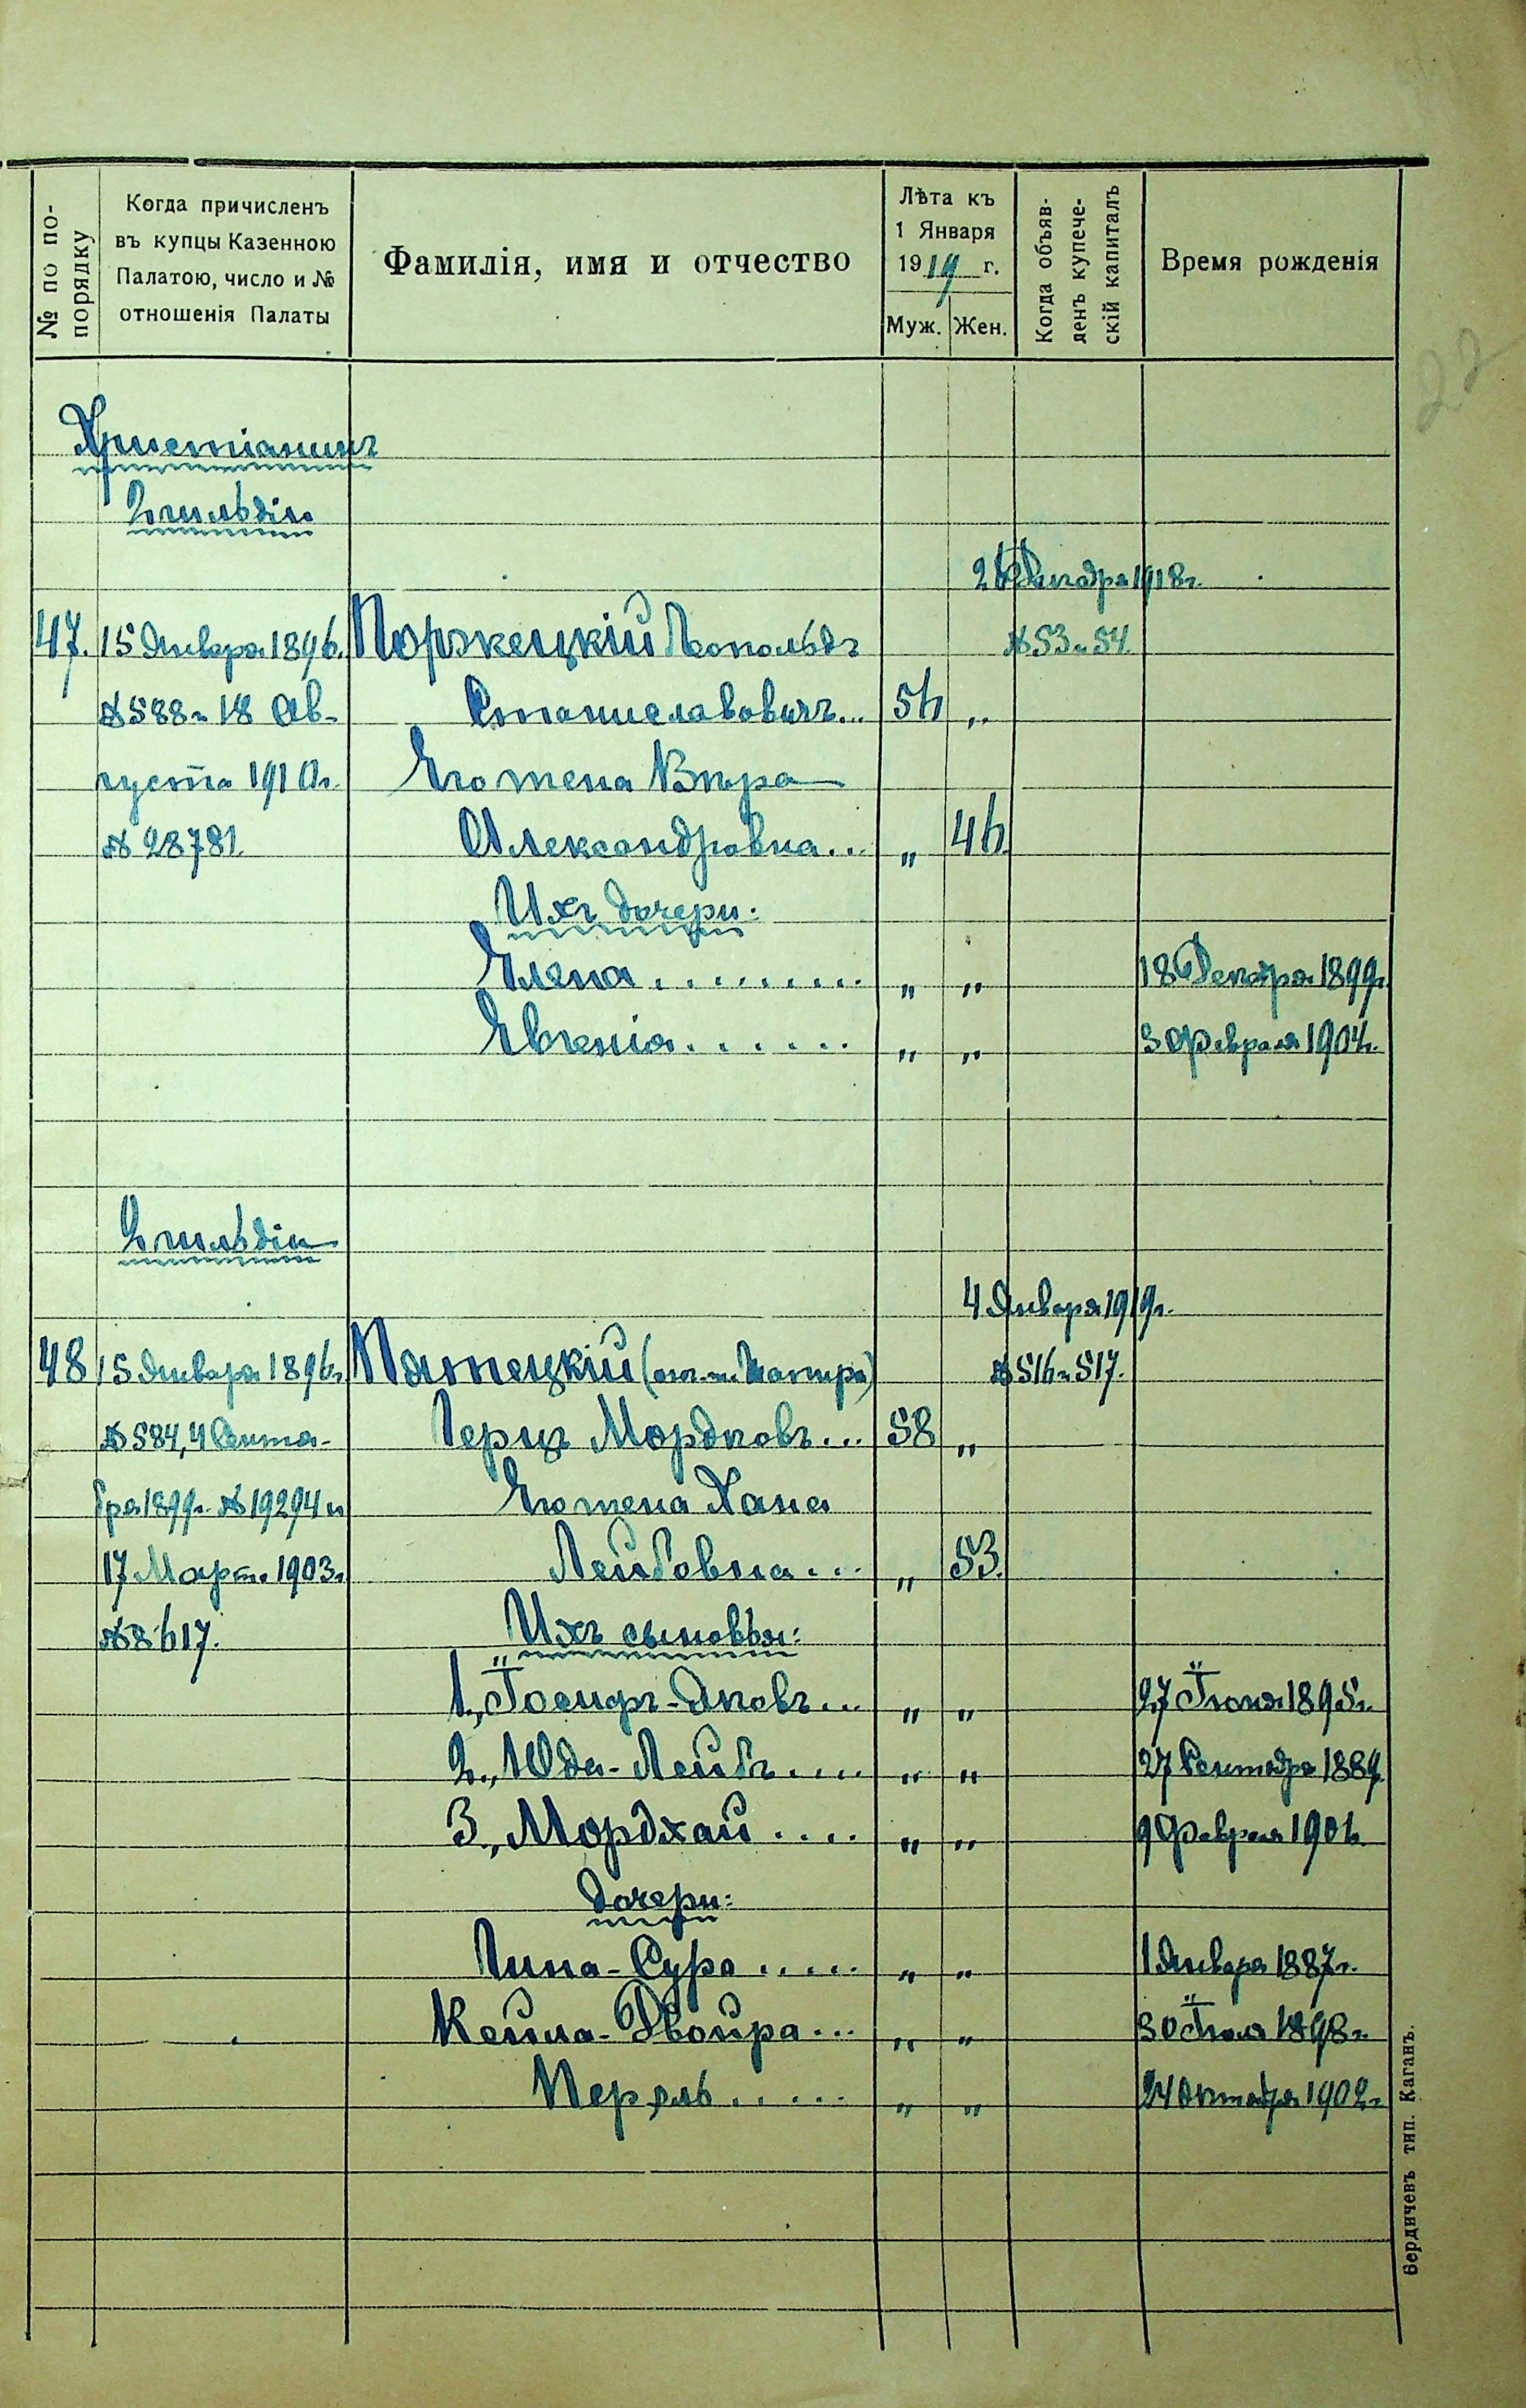 № по по-
порядку
Когда причисленъ
въ купцы Казенною
Палатою, число и №
отношенія Палаты
Фамилія, имя и отчество
Лѣта къ
1 Января
1919 г.
Муж. Жен.
Когда объяв-
денъ купече-
скій капиталъ
Время рожденія
22
Христіанинъ
2 гильдіи
28 Декабря 1918г.
47. 15 Января 1896. Поржецкій Леопольдъ № 53 и 54.
№ 588 и 18 Ав- Станиславовичъ... 56 „
густа 1910г. Его жена Вѣра
№ 28781. Александровна... „ 46.
Ихъ дочери:
Елена ......... „ „ 18 Декабря 1899г.
Евгенія ....... „ „ 3 Февраля 1904г.
2 гильдіи
4 Января 1919г.
48 15 Января 1896г. Пятецкій (онъ-же Шапиро) № 516 и 517.
№ 584, 4 Сентя- Герцъ Мордковъ... 58 „
бря 1899г. № 19294 и Его жена Хана
17 Марта 1903г. Лейбовна... „ 53.
№ 8617. Ихъ сыновья:
1., Іосифъ-Яковъ... „ „ 27 Іюня 1895г.
2., Юда-Лейбъ.... „ „ 27 Сентября 1889
3., Мордхай .... „ „ 9 Февраля 1906.
дочери:
Гина-Сура ..... „ „ 1 Января 1887г.
Кейла-Двойра... „ „ 30 Іюля 1898г.
Перель ..... „ „ 24 Октября 1902г.
Бердичевъ тип. Каганъ.